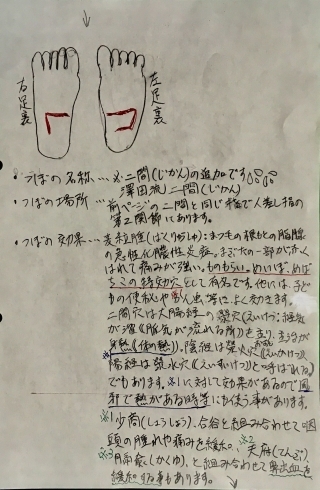 右足裏
左足裏
・つぼの名称…※二間(じかん)の追加です
澤田流 二間(じかん)
・つぼの場所…前ページの二間と同じ種で人差し指の
第二関節にあります。
・つぼの効果…麦粒腫(ばくりゅうしゅ):まつもの根もとの脂腺
の急性化膿性炎症。まぶたの一部が、赤く
はれて痛みが強い。ものもらい。めいぼ。めば
ちこの特効穴として有名です。他には、子ど
もの便秘や 等によく効きます。
二間穴は大腸経の滎穴(えいけつ):経気
が溜(脈気が流れる所)を主り、主治が
身熱(体の熱)。陰経は滎火穴(えいかけつ)
陽経は滎水穴(えいすいけつ)と呼ばれる穴
でもあります。※1に対して効果があるので風
邪で熱がある時等にも使う事があります。
※1少商(しょうしょう)、合谷と組み合わせて咽
頭の腫れや痛みを緩和。※2天府(てんぷ)
※3膈兪(かくゆ)、と組み合わせて鼻出血を
緩和する事もあります。